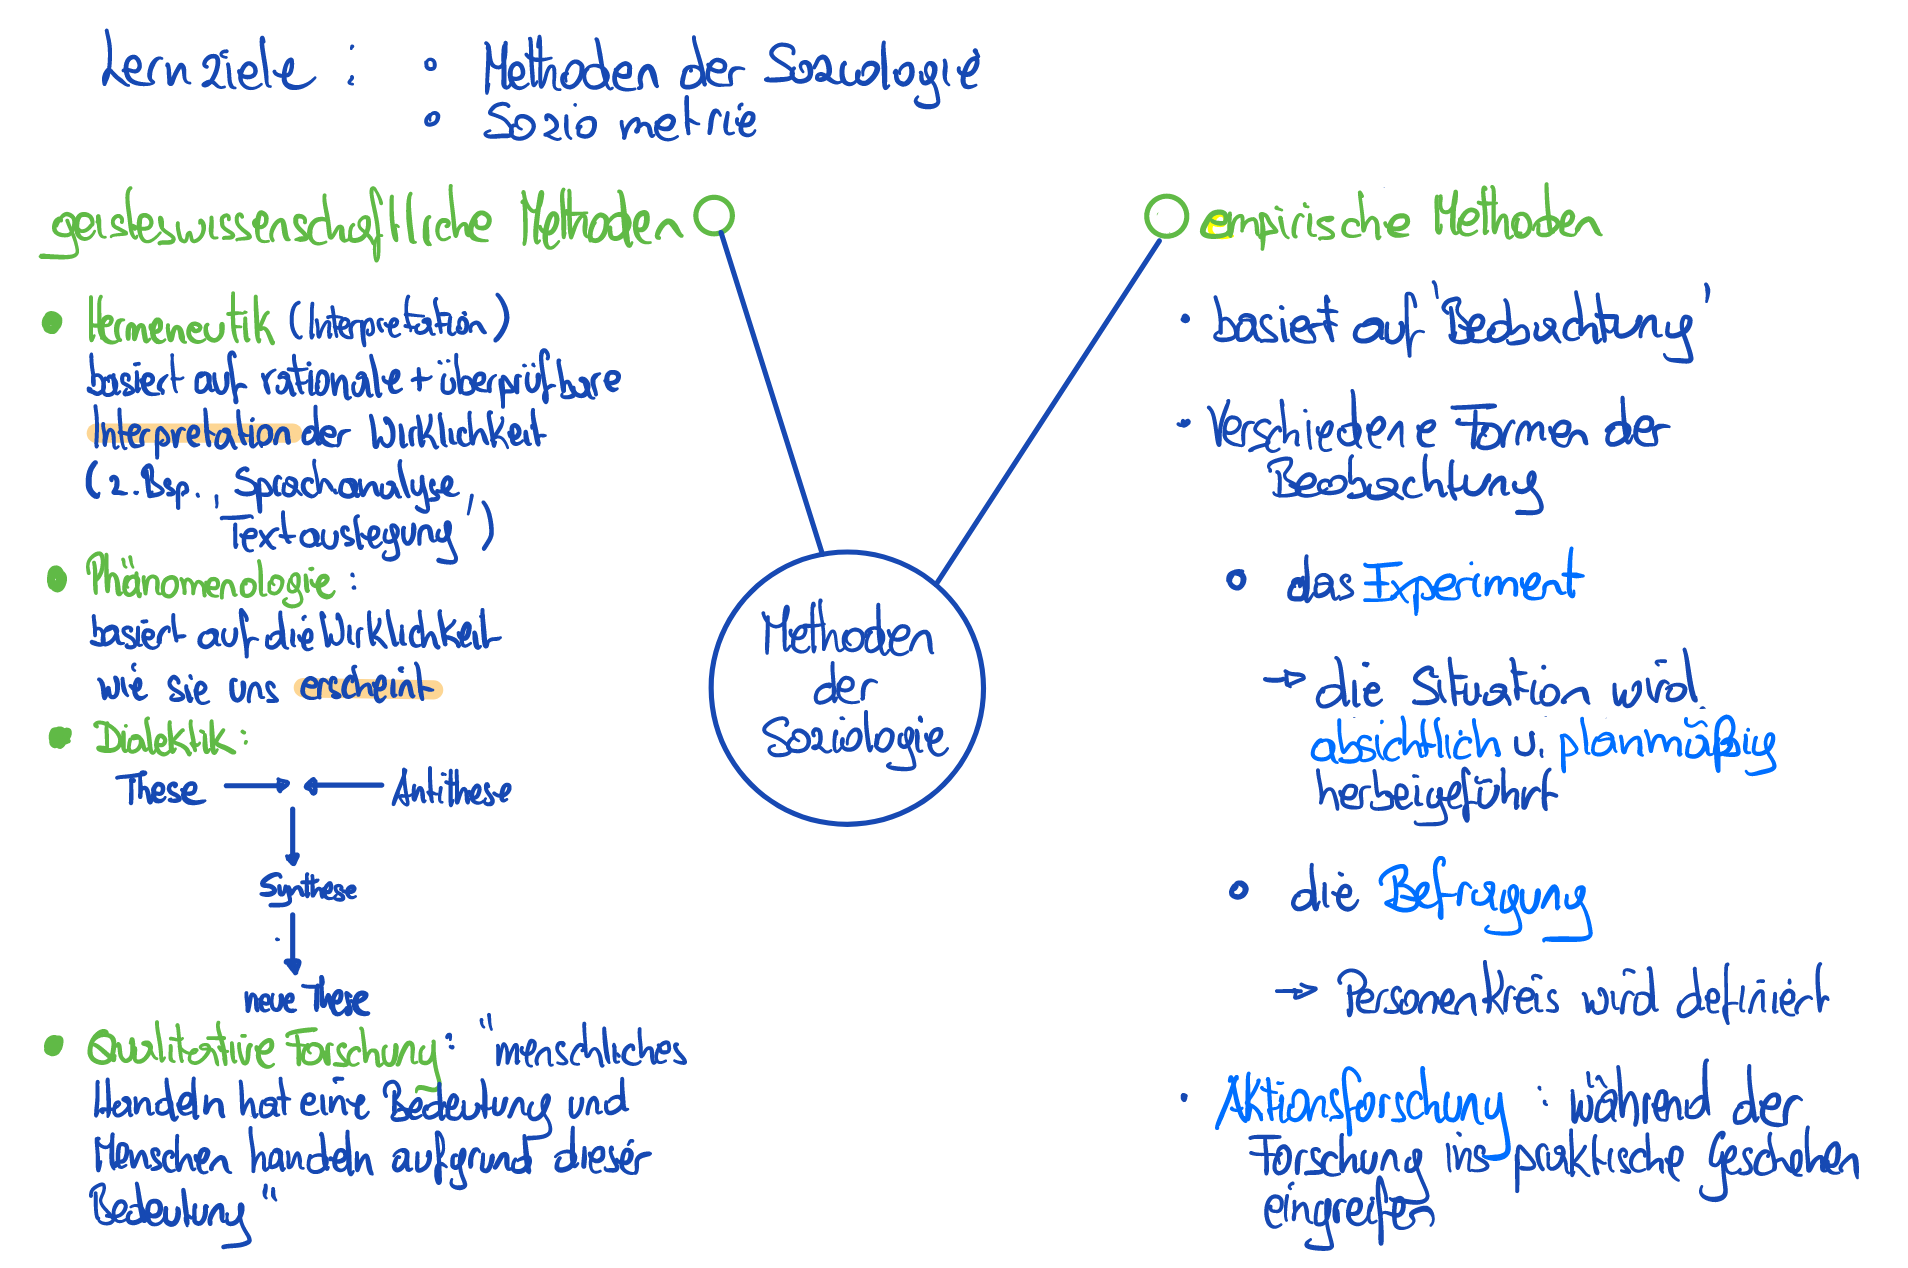 Lernziele : ° Methoden der Soziologie
° Soziometrie
geisteswissenschaftliche Methoden
• Hermeneutik (Interpretation)
basiert auf rationale + überprüfbare
Interpretation der Wirklichkeit
(z.Bsp. 'Sprachanalyse,
Textauslegung')
• Phänomenologie :
basiert auf die Wirklichkeit
wie sie uns erscheint
• Dialektik:
These → ← Antithese
↓
Synthese
↓
neue These
• Qualitative Forschung : "menschliches
Handeln hat eine Bedeutung und
Menschen handeln aufgrund dieser
Bedeutung"
Methoden
der
Soziologie
empirische Methoden
• basiert auf 'Beobachtung'
• Verschiedene Formen der
Beobachtung
° das Experiment
→ die Situation wird
absichtlich u. planmäßig
herbeigeführt
° die Befragung
→ Personenkreis wird definiert
• Aktionsforschung : während der
Forschung ins praktische Geschehen
eingreifen